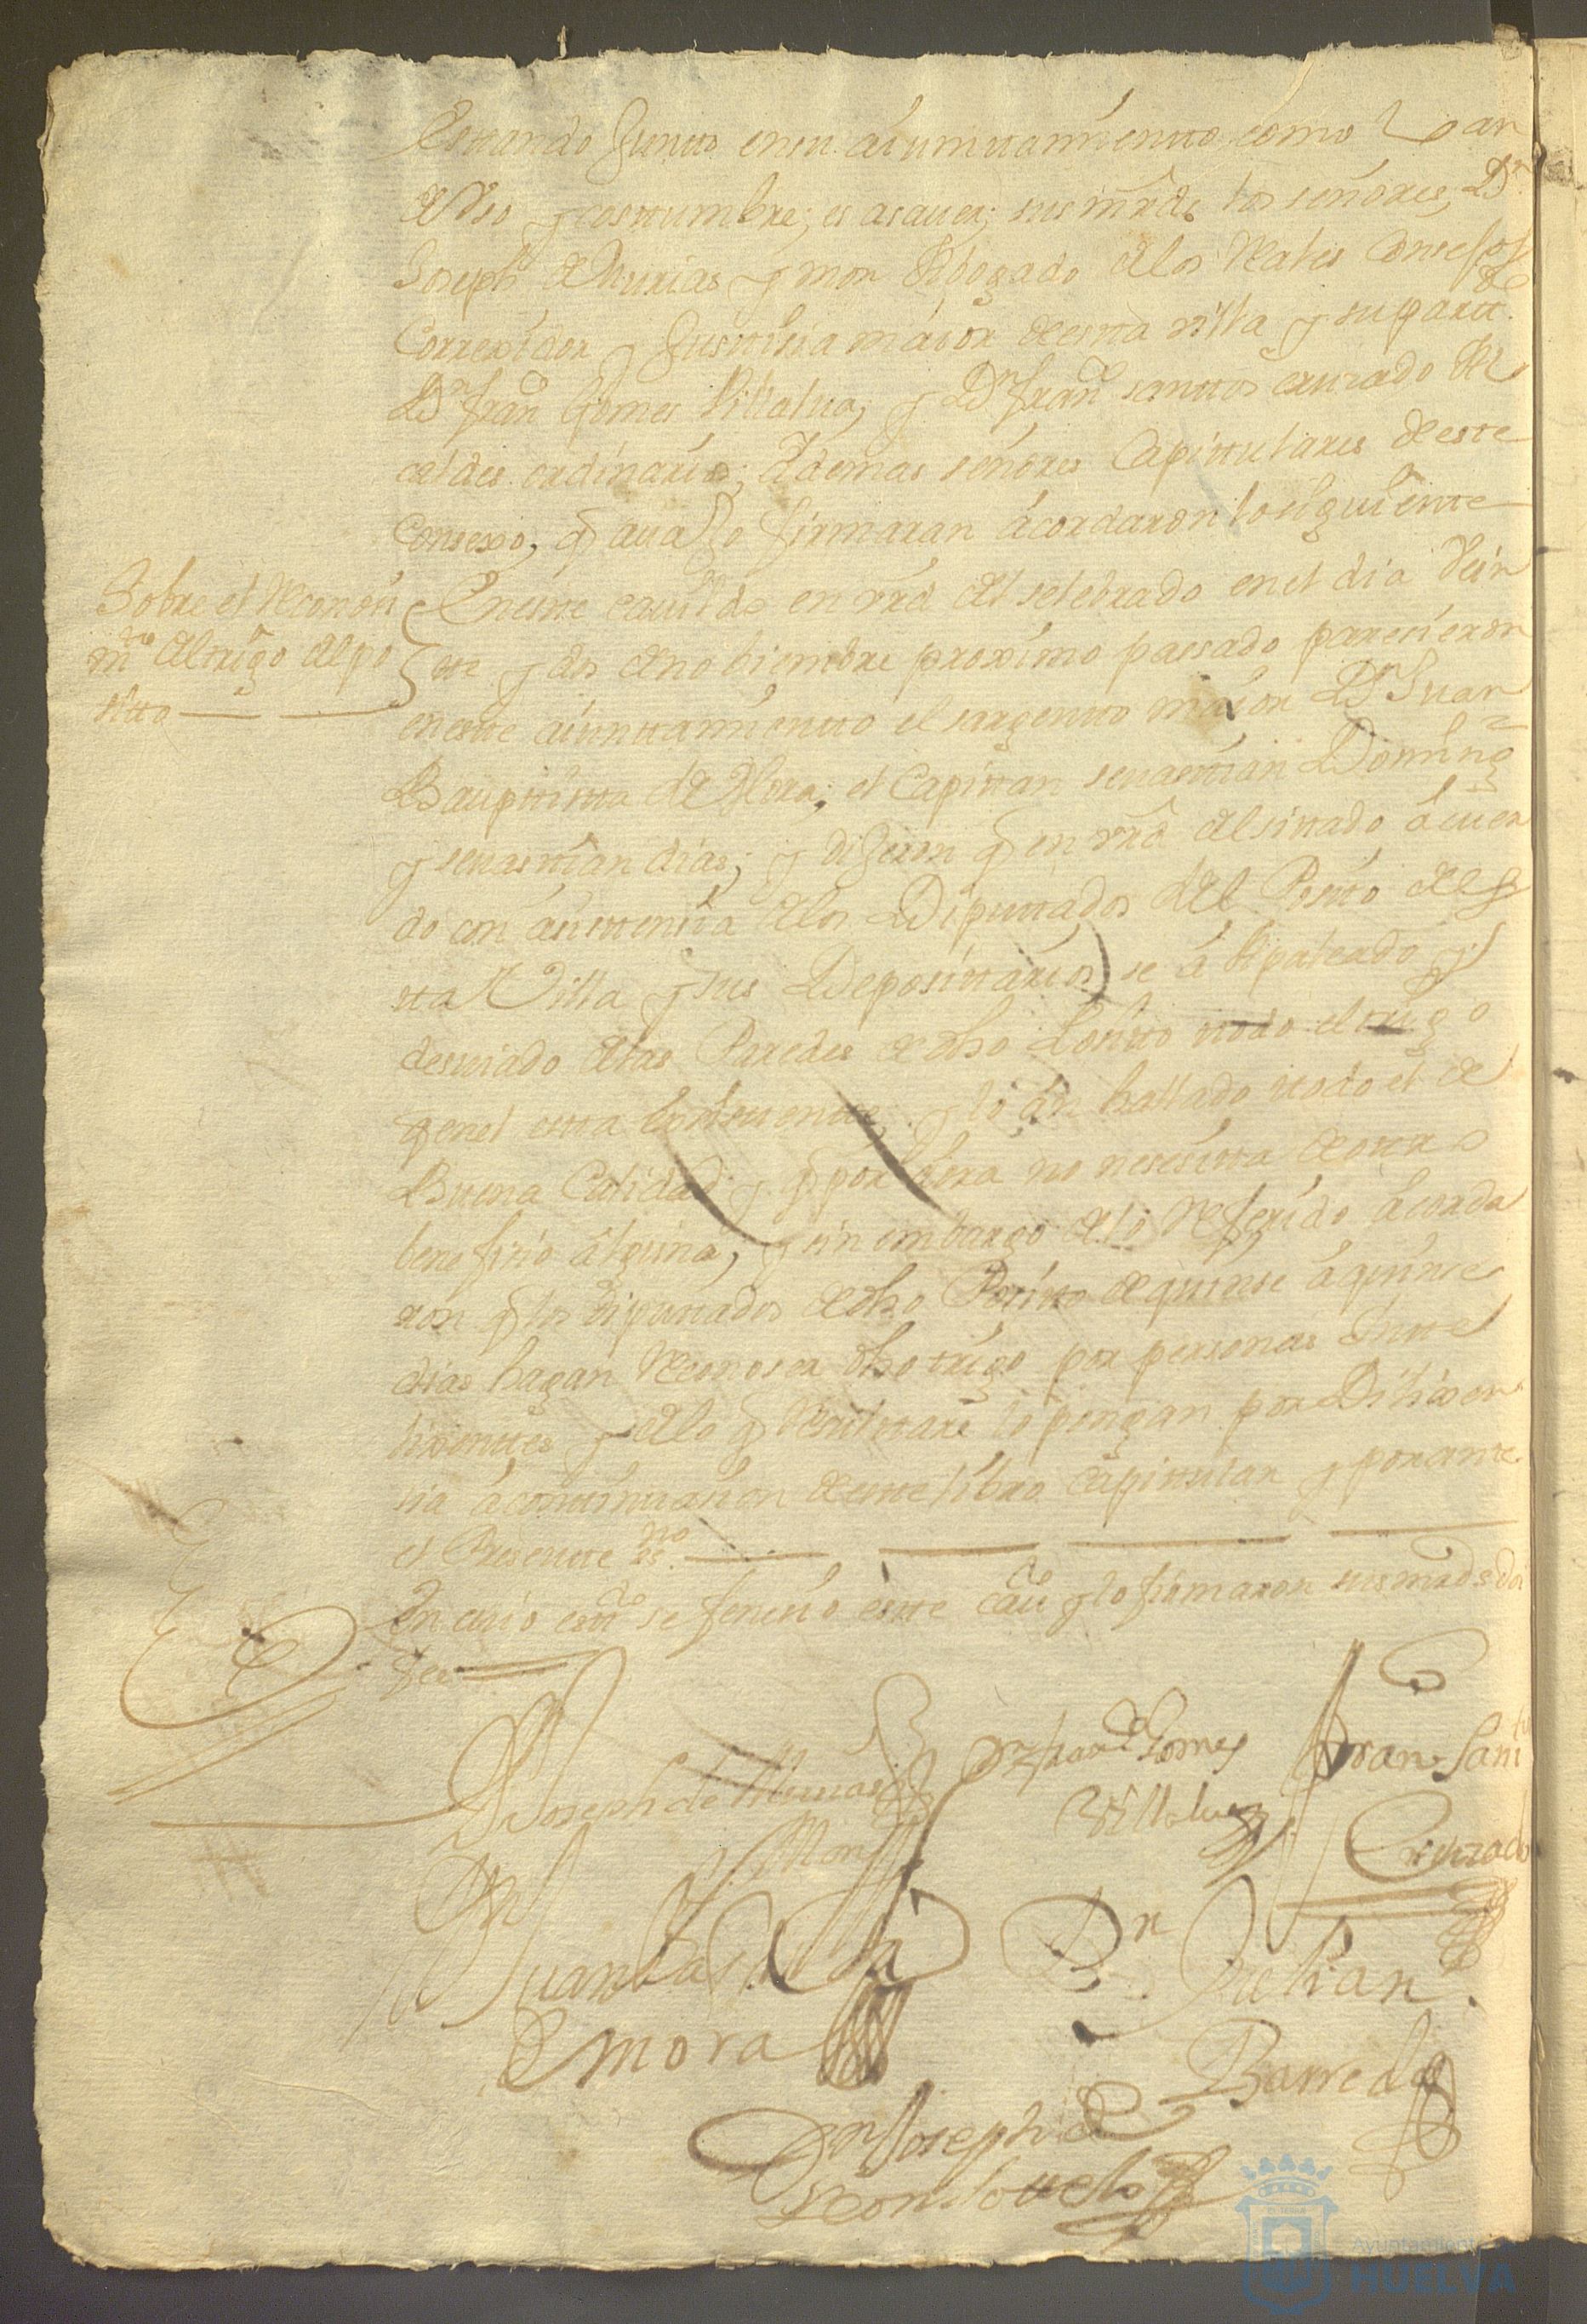 Estando Juntto en su aiunttamientto como lo an
de Vso y costtumbre, es asauer, sus mrds. los señores, Dn.
Joseph de Murias y mon Abogado de los Reales Consejos
Correxidor y Justtisia maior de estta villa y su partt.do
Dn. franco. Gomes Villalua, y Dn. franco. santtos cruzado Al
caldes ordinarios, y demas señores Capittulares de este
Consexo, q auajo firmaran acordaron lo siguiente
Sobre el Reconosi
mto. del trigo del po
sitto
En estte cauildo en vrd. del selebrado en el dia Vein
tte y dos de nobiembre proximo passado paresieron
en estte aiunttamientto el sargentto maior Dn. Juan
Baupttistta de Mora, el Capittan seuasttian Doming.
y seuasttian dias, y dijeron q en vrd. del sittado acuer
do con asisttensia de los Diputtados del Positto de es
tta Villa y sus Deposittarios se á
desuiado de las Paredes de dho Positto ttodo el trigo
q en el estta y lo án hallado ttodo el de
Buena Calidad y q por aora no nesesitta de otro
benefisio alguno, y sin embargo de lo Referido acorda
ron q los diputtados de dho Positto de quinse a quinse
dias hagan Reconoser dho trigo por personas Intte
lixenttes y de lo q Resulttare lo pongan por Dilixen
sia a conttinuasion de estte libro Capittular y por ante
el Presentte esno.
En cuio esttdo. se fenesio estte caudo. y lo firmaron sus mrds. doi
fee
Joseph de Murias
y Mon
Dn. franco. Gomes
Villalua
Dn. Fran. Santtos
Cruzado
Juan bautista
de mora
Dn. Julian
Barreda
Dn. Joseph de
Ayuntamiento
HUELVA